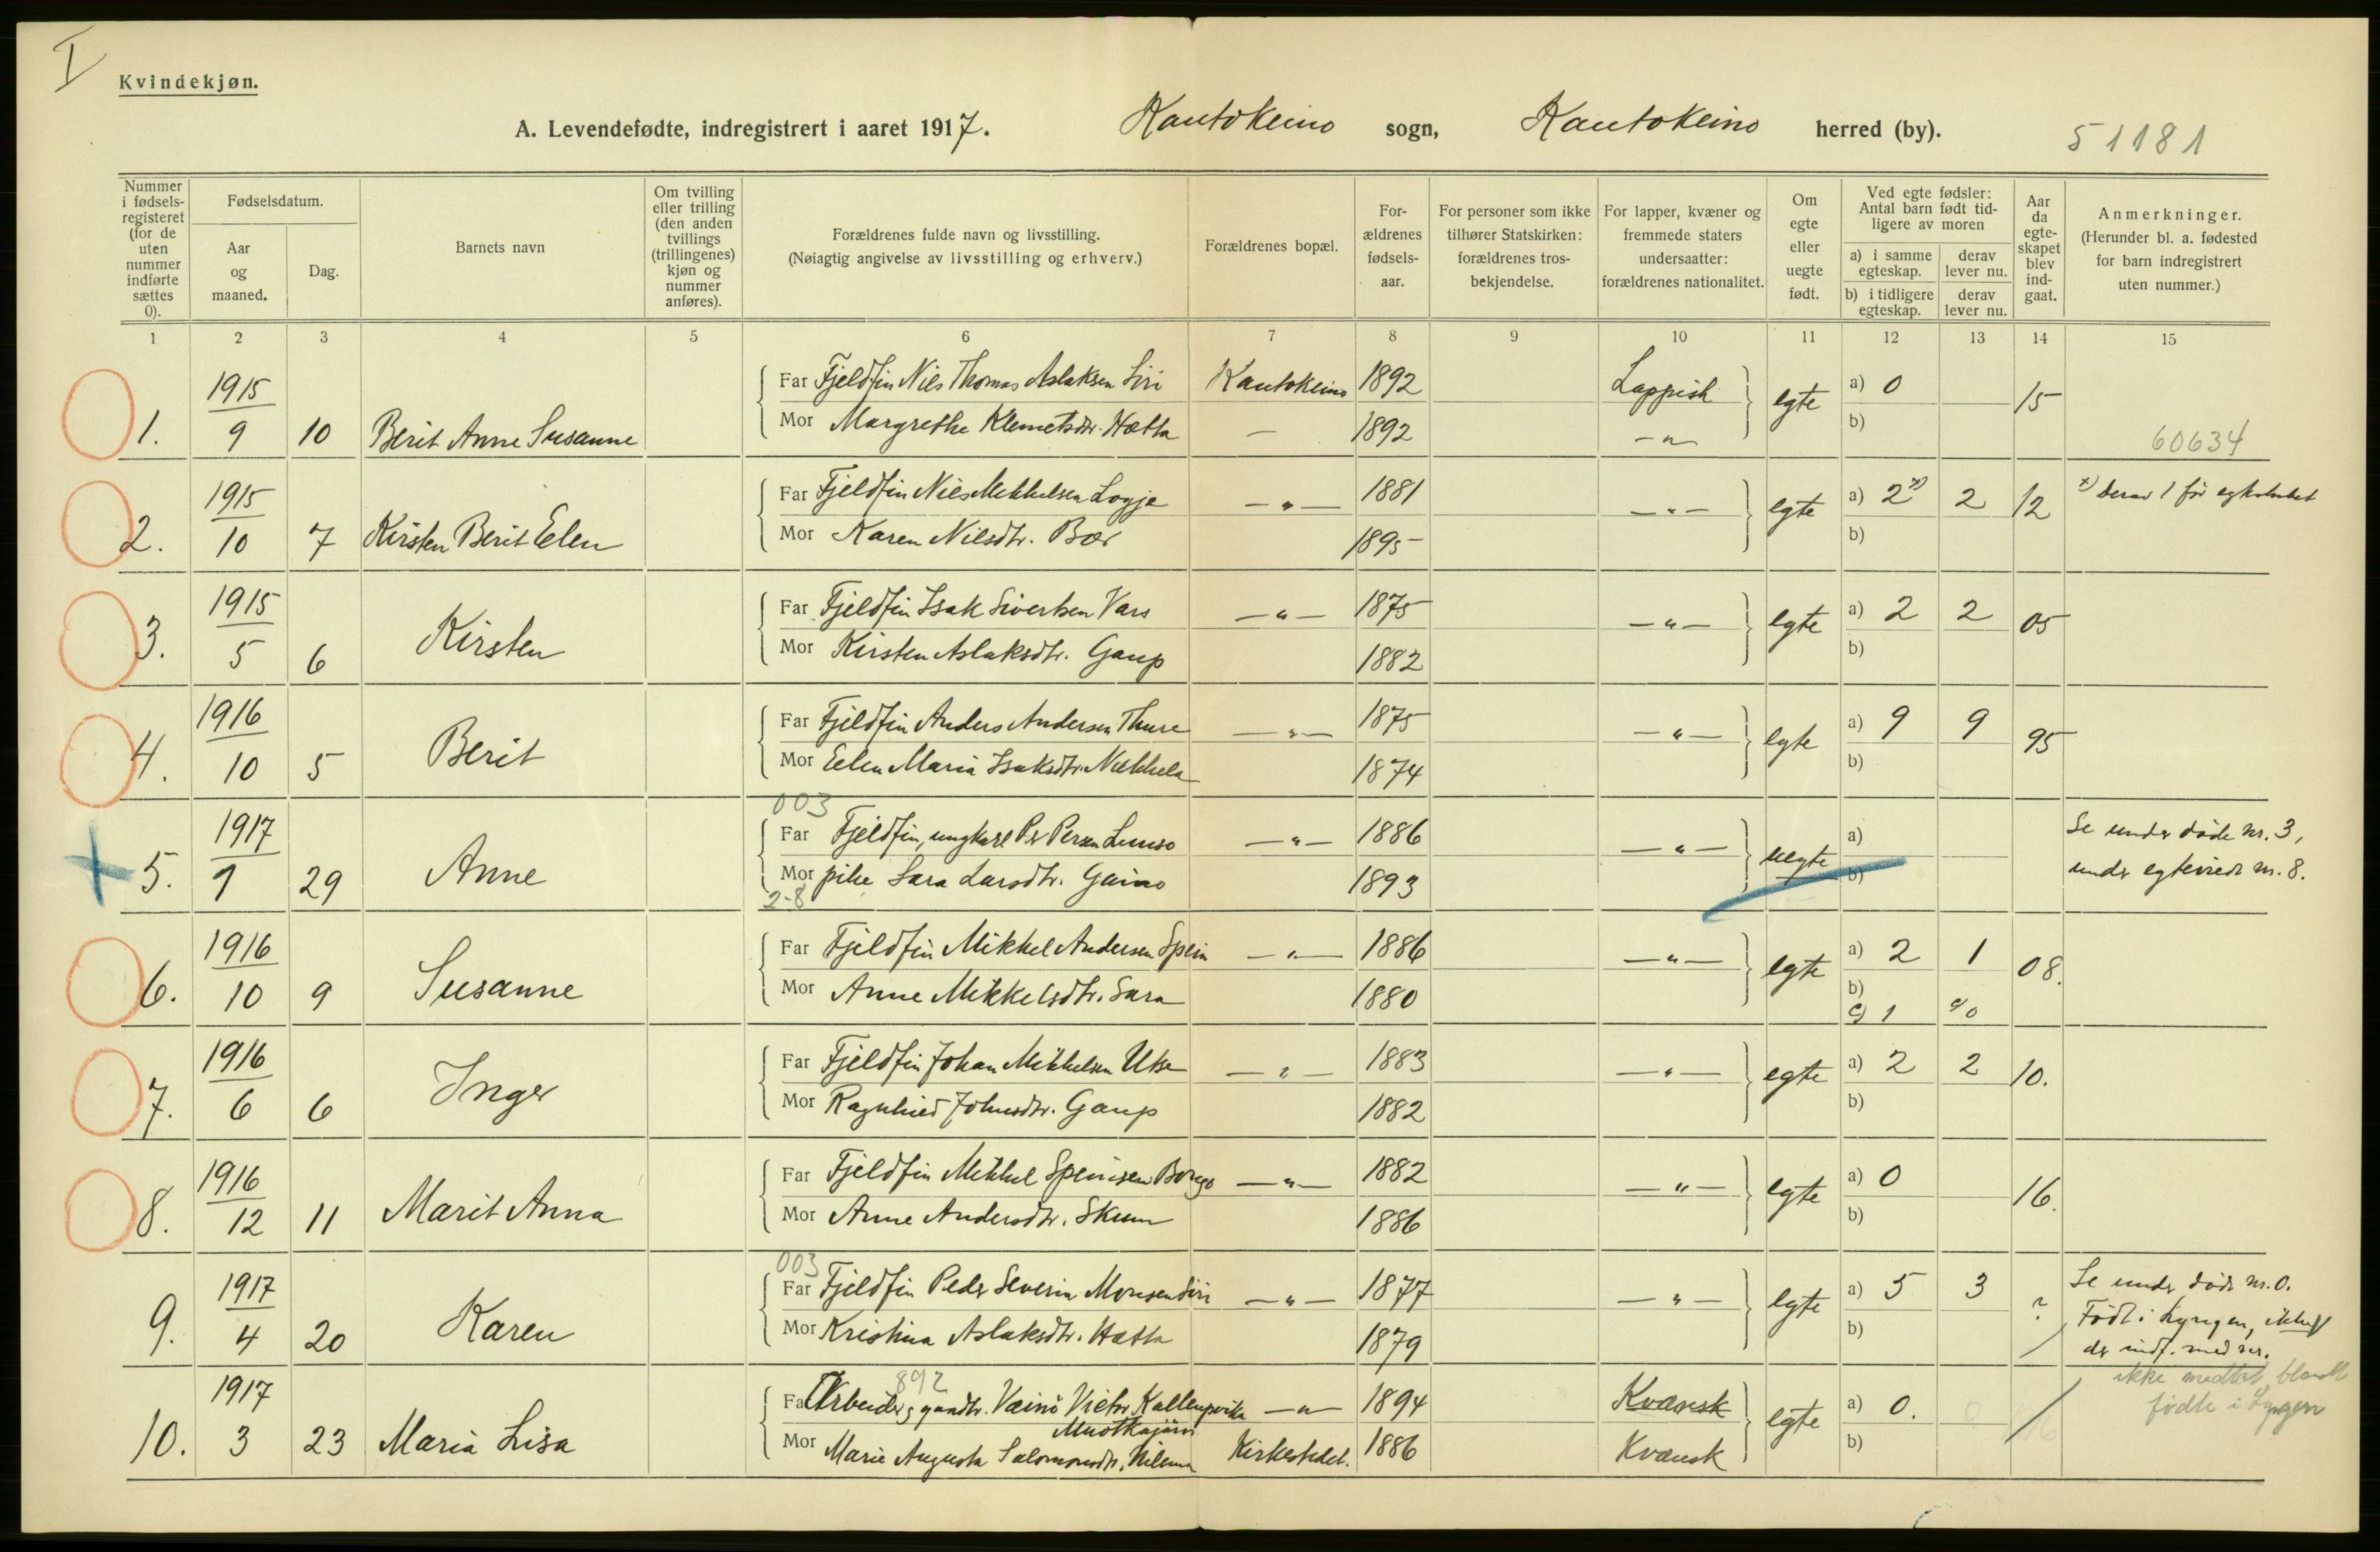 I
Kvindekjøn.
A. Levendefødte, indregistrert i aaret 1917. Kautokeino sogn, Kautokeino herred (by). 51181
Nummer i fødsels-registeret (for de uten nummer indførte sættes 0).
Fødselsdatum.
Aar og maaned.
Dag.
Barnets navn
Om tvilling eller trilling (den anden tvillings (trillingenes) kjøn og nummer anføres).
Forældrenes fulde navn og livsstilling.
(Nøiagtig angivelse av livsstilling og erhverv.)
Forældrenes bopæl.
For-ældrenes fødsels-aar.
For personer som ikke tilhører Statskirken: forældrenes tros-bekjendelse.
For lapper, kvæner og fremmede staters undersaatter: forældrenes nationalitet.
Om egte eller uegte født.
Ved egte fødsler: Antal barn født tid-ligere av moren
a) i samme egteskap. derav lever nu.
b) i tidligere egteskap. derav lever nu.
Aar da egte-skapet blev ind-gaat.
Anmerkninger.
(Herunder bl. a. fødested for barn indregistrert uten nummer.)
1 2 3 4 5 6 7 8 9 10 11 12 13 14 15
1915
Far Fjeldfin Nils Thomas Aslaksen Siri Kautokeino 1892 Lappish a) 0
1. 9 10 Berit Anne Susanne egte 15
Mor Margrethe Klemetsdtr. Hætta — 1892 — " — b)
60634
1915
Far Fjeldfin Nils Mikkelsen Logje — " — 1881 a) 2 x) 2 x) derav 1 før egteskabet
2. 10 7 Kirsten Berit Elen — " — egte 12
Mor Karen Nilsdtr. Bær 1895 b)
1915
Far Fjeldfin Isak Sivertsen Vars — " — 1875 a) 2 2
3. 5 6 Kirsten — " — egte 05
Mor Kirsten Aslaksdtr. Gaup 1882 b)
1916
Far Fjeldfin Anders Andersen Thure — " — 1875 a) 9 9
4. 10 5 Berit — " — egte 95
Mor Elen Maria Isaksdtr. Näkkela 1874 b)
003
1917
Far Fjeldfin, ungkarl Per Persen Lumso — " — 1886 a) Se under døde nr. 3,
5. 1 29 Anne — " — uegte
Mor pike Sara Larsdtr. Gaino 1893 b) under egteviede nr. 8.
2-8
1916
Far Fjeldfin Mikkel Andersen Spein — " — 1886 a) 2 1
6. 10 9 Susanne — " — egte 08.
Mor Anne Mikkelsdtr. Sara 1880 b)
c) 1 c) 0
1916
Far Fjeldfin Johan Mikkelsen Utse — " — 1883 a) 2 2
7. 6 6 Inger — " — egte 10.
Mor Ragnhild Johnsdtr. Gaup 1882 b)
1916
Far Fjeldfin Mikkel Speinsen Bongo — " — 1882 a) 0
8. 12 11 Marit Anna — " — egte 16.
Mor Anne Andersdtr. Skum 1886 b)
003
1917
Far Fjeldfin Peder Severin Monsen Siri — " — 1877 a) 5 3 Se under døde nr. 0.
9. 4 20 Karen — " — egte ? Født i Lyngen, ikke
Mor Kristina Aslaksdtr. Hætta 1879 b) der indf. med nr.
ikke medtat blandt
fødte i Lyngen
892
1917
Far Arbeider, Väinö Victor — " — 1894 Kvænsk a) 0.
Muotkajärvi
10. 3 23 Maria Lisa egte
Mor Marie Augusta Salomonsdtr. Kirkestedet. 1886 Kvænsk b)